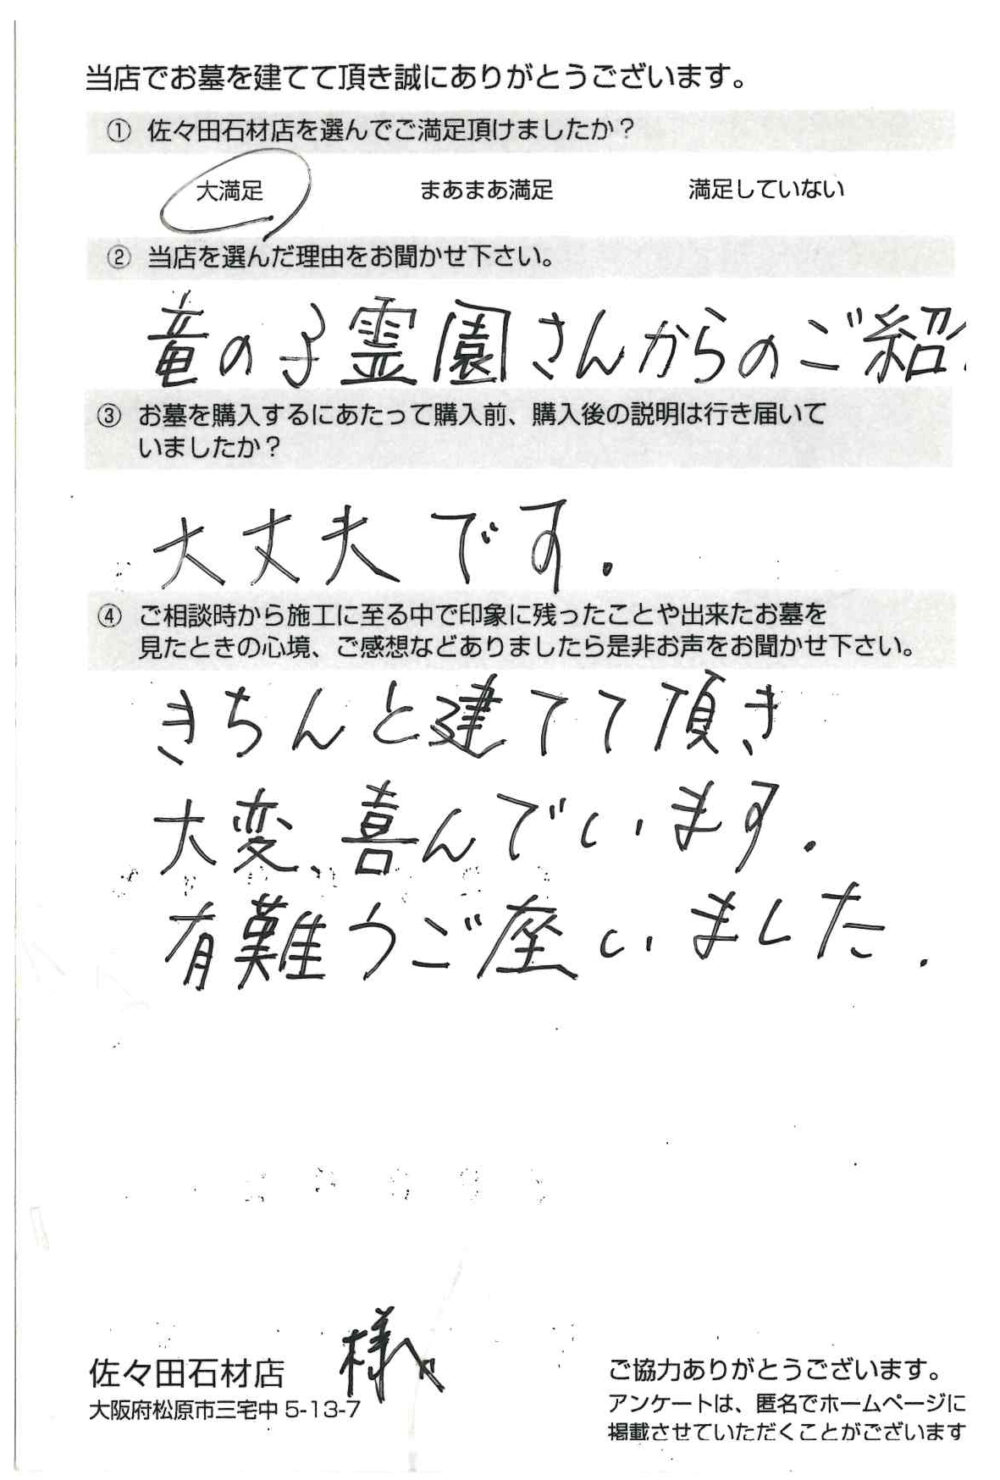 当店でお墓を建てて頂き誠にありがとうございます。
① 佐々田石材店を選んでご満足頂けましたか？
大満足 まあまあ満足 満足していない
② 当店を選んだ理由をお聞かせ下さい。
竜の子霊園さんからのご紹
③ お墓を購入するにあたって購入前、購入後の説明は行き届いて
いましたか？
大丈夫です.
④ ご相談時から施工に至る中で印象に残ったことや出来たお墓を
見たときの心境、ご感想などありましたら是非お声をお聞かせ下さい。
きちんと建てて頂き
大変、喜んでいます.
有難うご座いました.
佐々田石材店 様へ
大阪府松原市三宅中 5-13-7
ご協力ありがとうございます。
アンケートは、匿名でホームページに
掲載させていただくことがございます